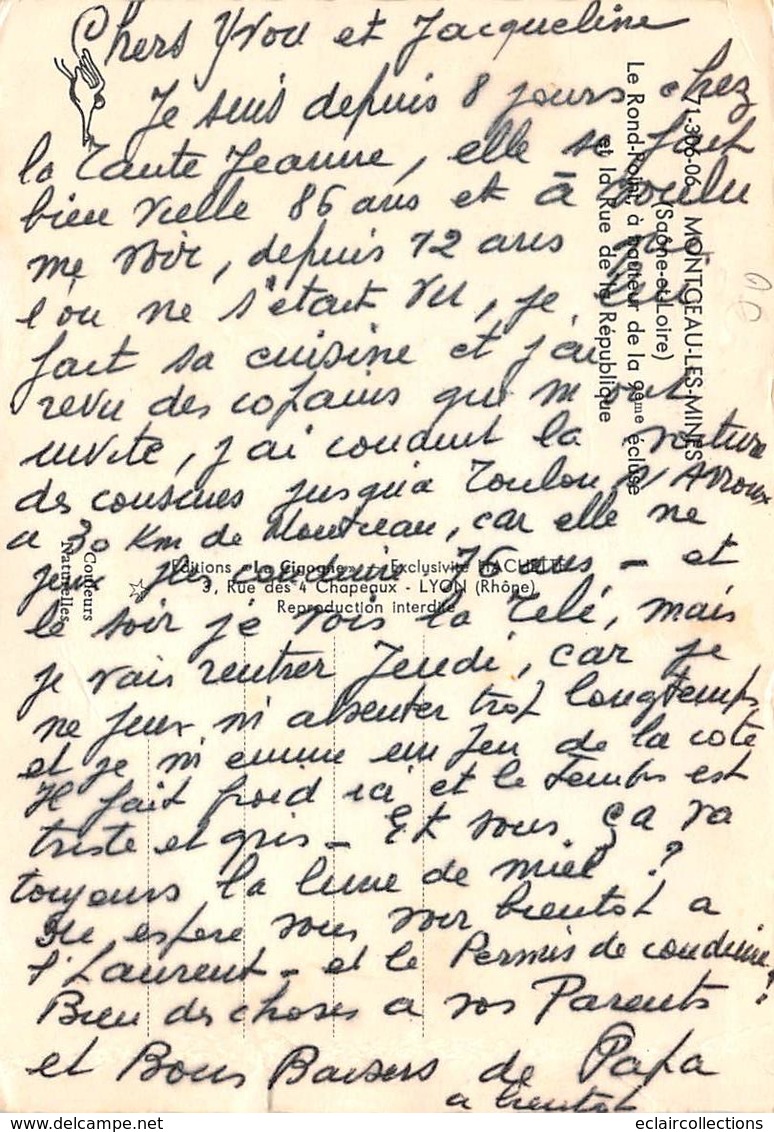 Chers Yvou et Jacqueline
Je suis depuis 8 jours chez
la Tante Jeanne, elle se fait
bien vielle 86 ans et à voulu
me voir, depuis 12 ans
l'on ne s'était vu, je lui
fait sa cuisine et j'ai
revu des copains qui m'ont
invité, j'ai conduit la voiture
des cousines jusqu'a Toulon s/ Arroux
a 30 Km de Montceau, car elle ne
peux plus conduire 76 ans - et
le soir je vois la Télé, mais
je vais rentrer Jeudi, car je
ne peux m'absenter trop longtemps
et je m'ennuie un peu de la cote
Il fait froid ici et le Temps est
triste et gris - Et vous ça va
toujours la lune de miel ?
Je espere vous voir bientot a
St Laurent - et le Permis de conduire ?
Bien des choses a vos Parents
et Bons Baisers de Papa
a bientot
71-306-06 MONTCEAU-LES-MINES
(Saône-et-Loire)
Le Rond-Point, à hauteur de la 9ème écluse
et la Rue de la République
Couleurs
Naturelles
Editions "La Cigogne" - Exclusivité HACHETTE
3, Rue des 4 Chapeaux - LYON (Rhône)
Reproduction interdite
eclaircollections